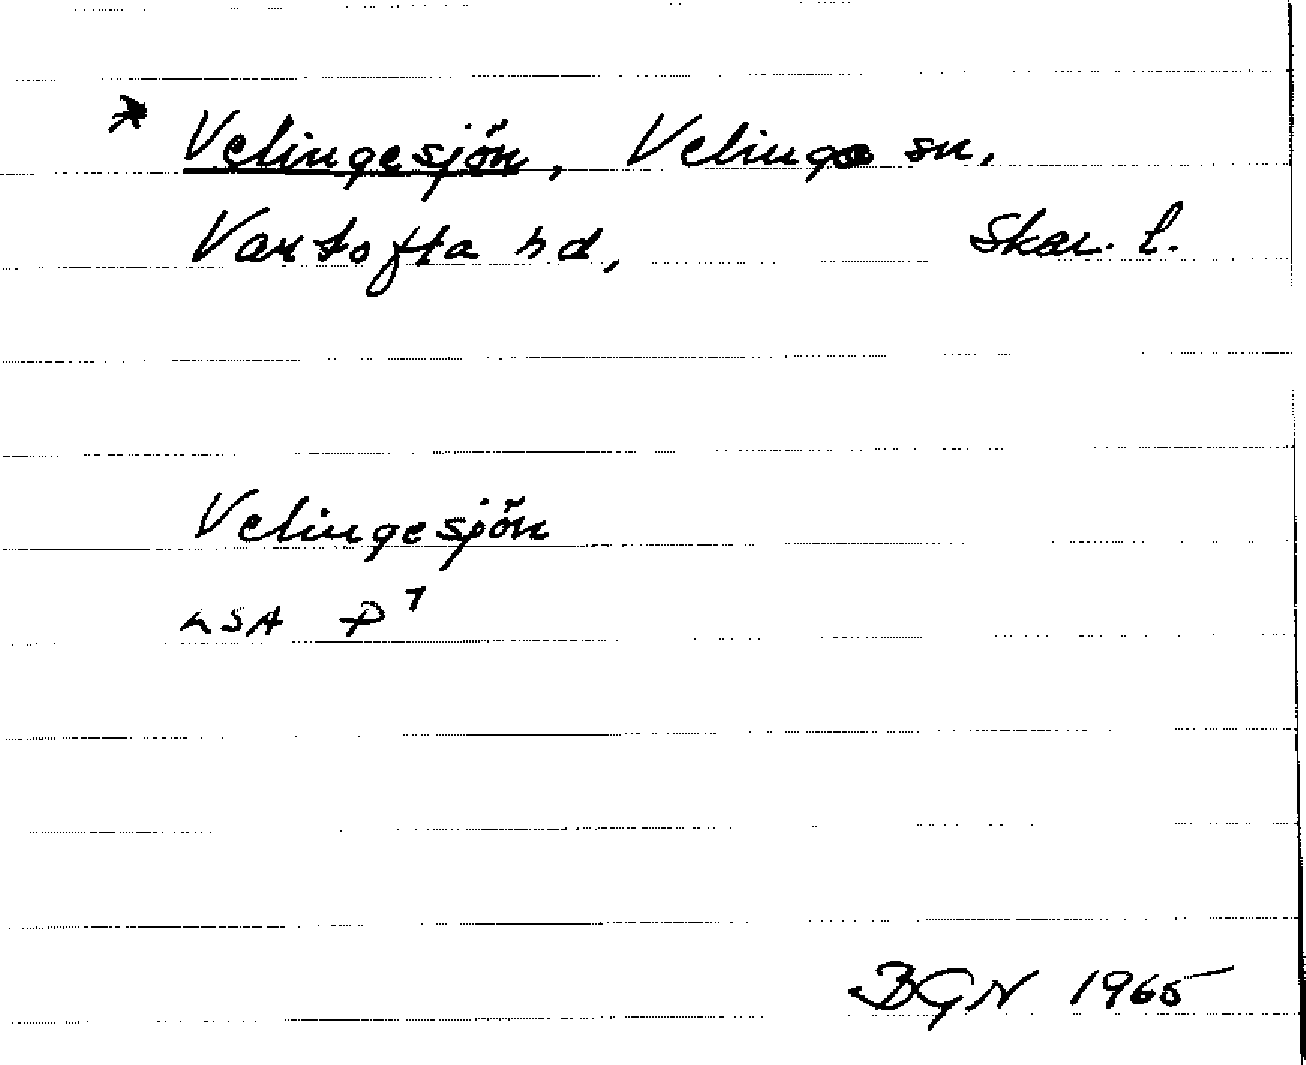 * Velingesjön, Velinge sn.
Vartofta hd, Skar. l.
Velingesjön
LSA P7
BGN 1965